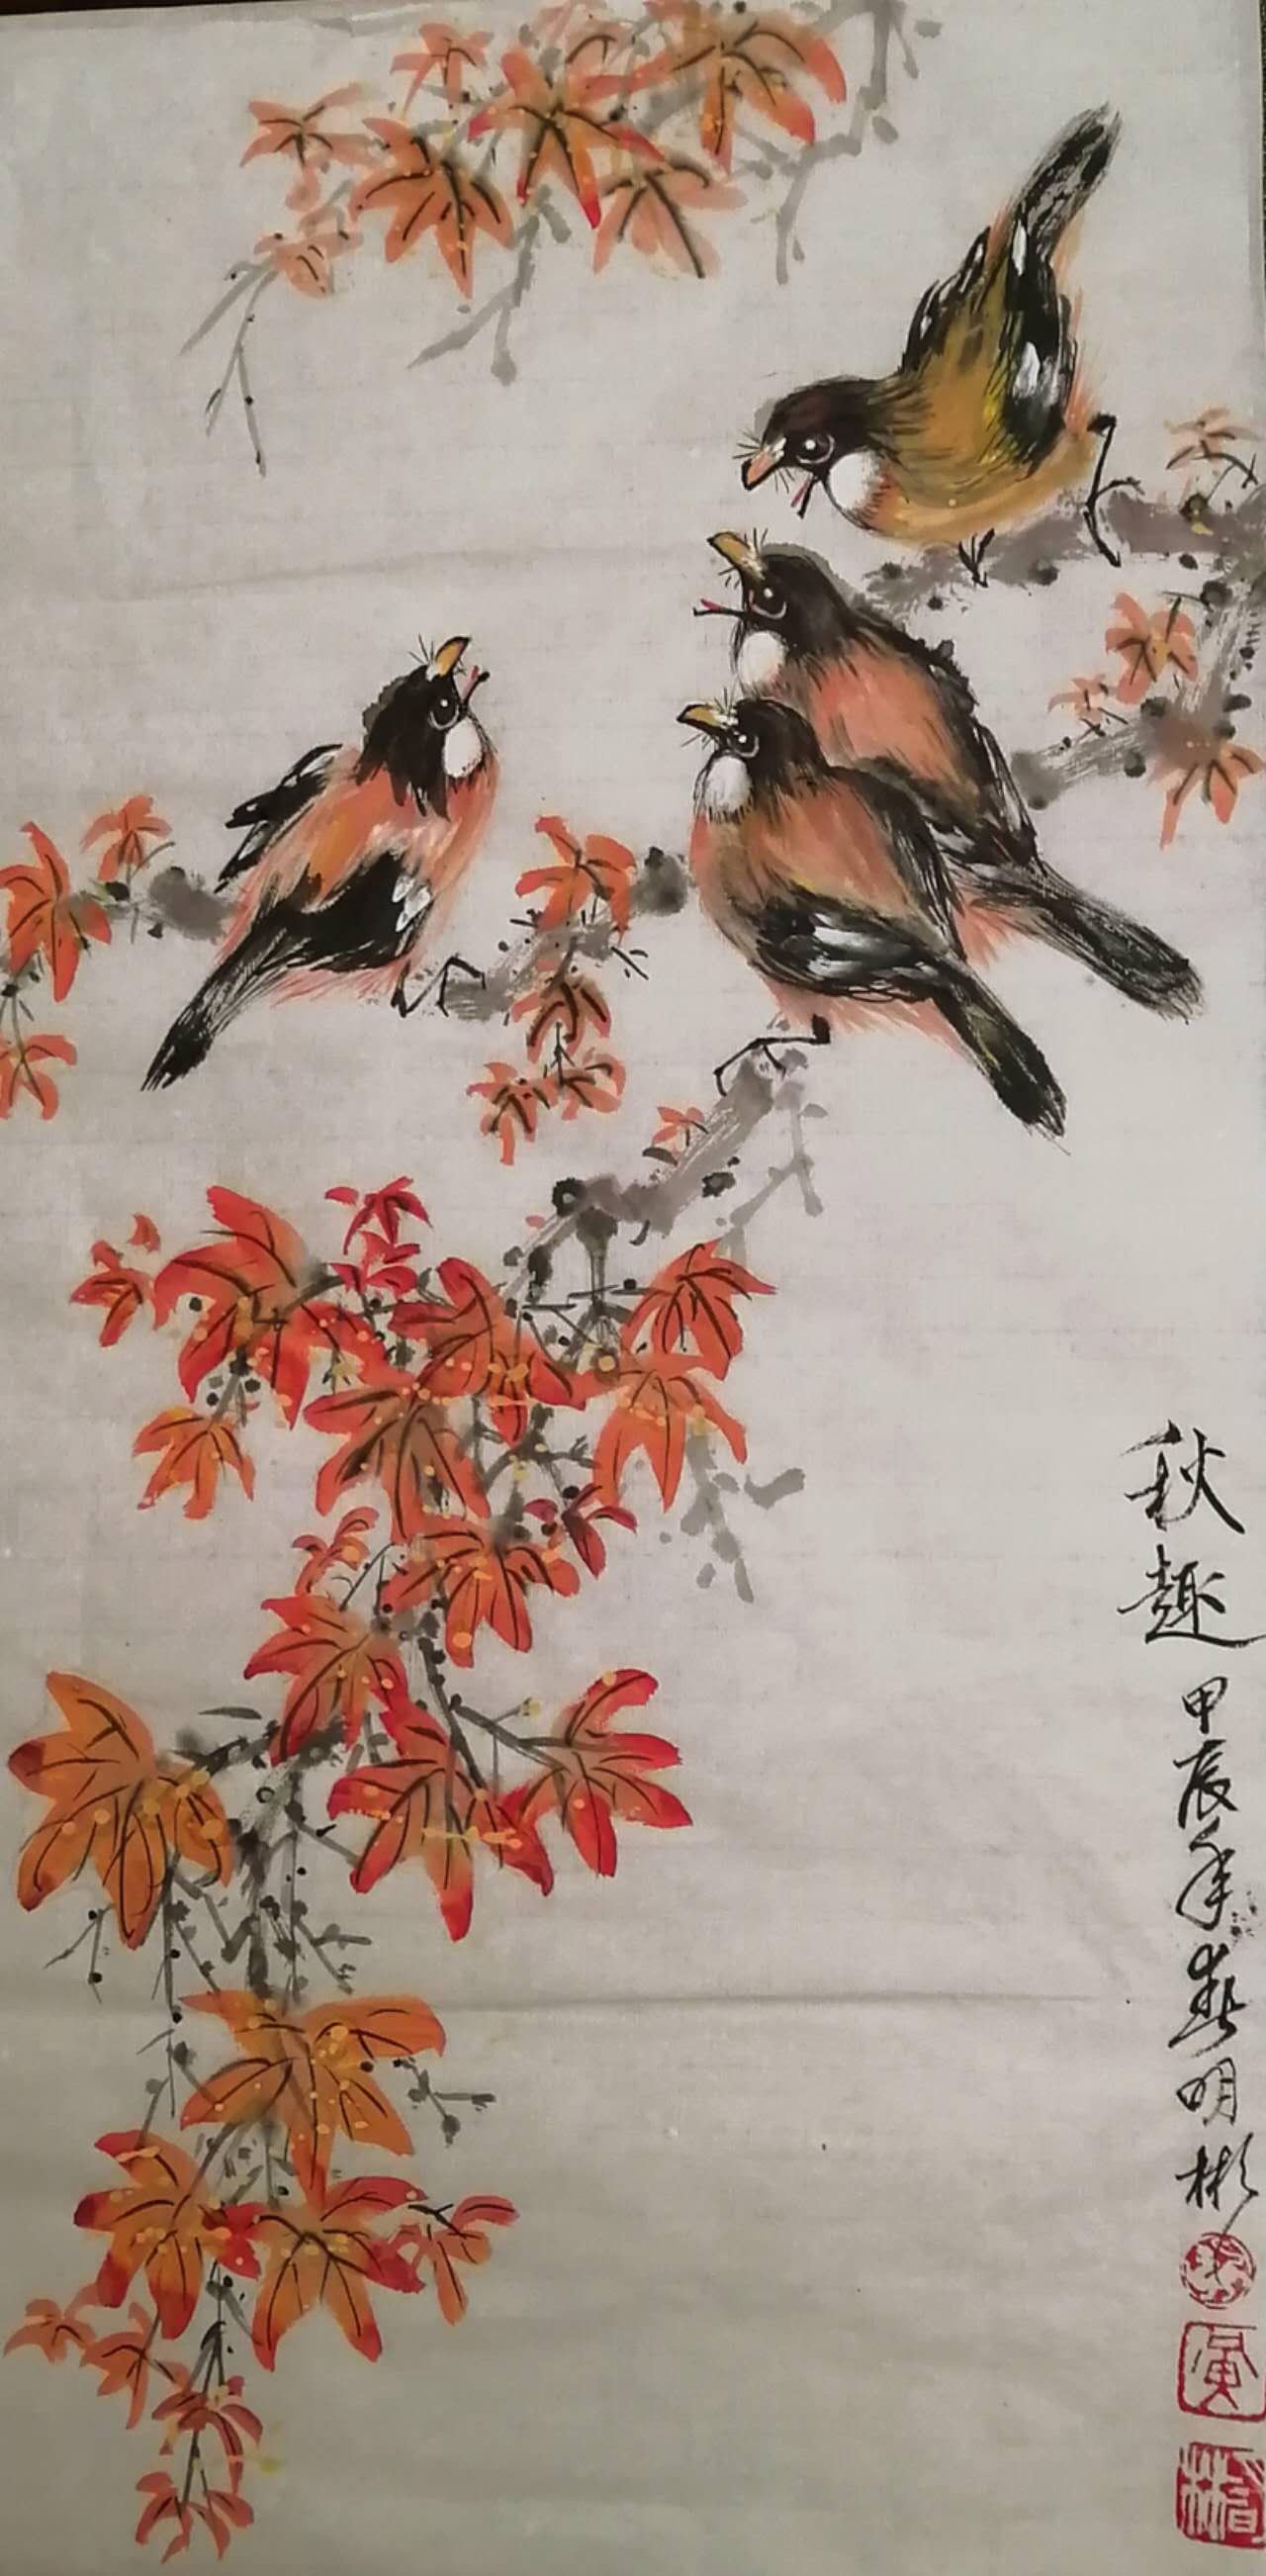 秋趣
甲辰年春明彬